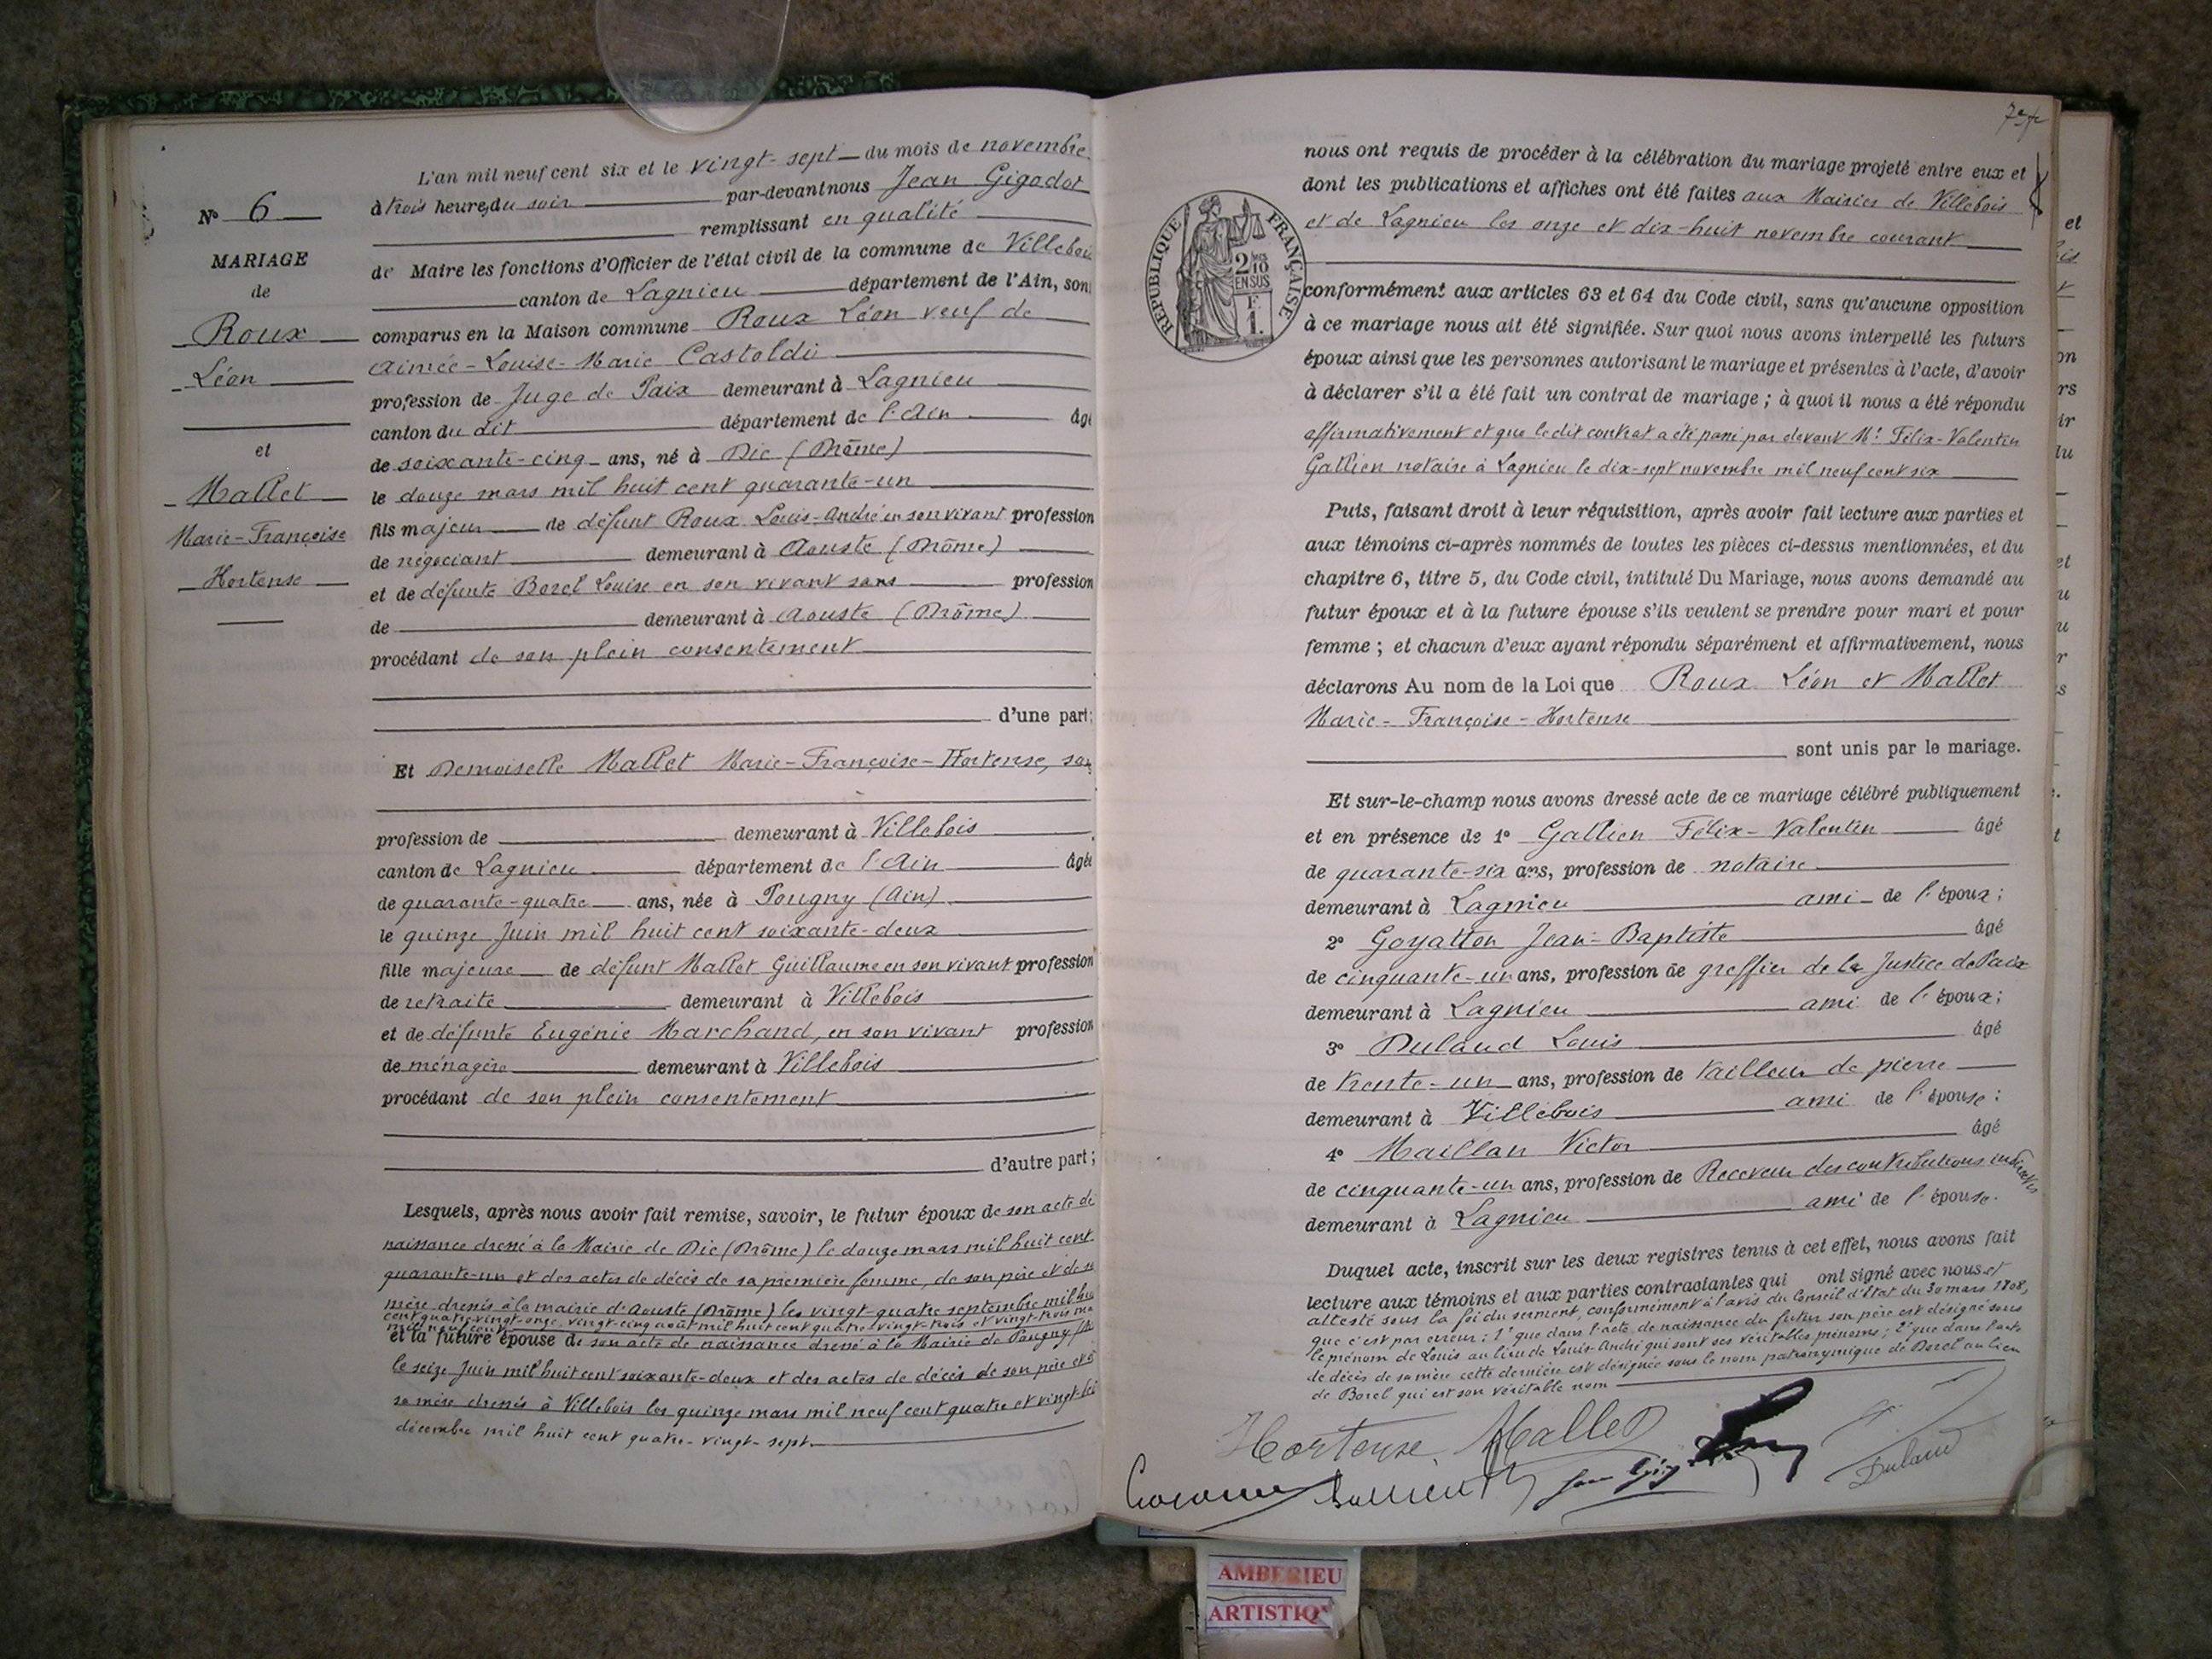 N° 6
MARIAGE
de
Roux
Léon
et
Mallet
Marie-Françoise
Hortense
L'an mil neuf cent six et le vingt-sept du mois de novembre
à trois heures du soir par-devant nous Jean Gigodot
remplissant en qualité
de Maire les fonctions d'Officier de l'état civil de la commune de Villebois
canton de Lagnieu département de l'Ain, sont
comparus en la Maison commune Roux Léon veuf de
Aimée-Louise-Marie Castoldi
profession de Juge de Paix demeurant à Lagnieu
canton du dit département de l'Ain âgé
de soixante-cinq ans, né à Die (Drôme)
le douze mars mil huit cent quarante-un
fils majeur de défunt Roux Louis-André en son vivant profession
de négociant demeurant à Aouste (Drôme)
et de défunte Borel Louise en son vivant sans profession
de demeurant à Aouste (Drôme)
procédant de son plein consentement
d'une part;
Et Demoiselle Mallet Marie-Françoise-Hortense, sans
profession de demeurant à Villebois
canton de Lagnieu département de l'Ain âgée
de quarante-quatre ans, née à Pougny (Ain)
le quinze Juin mil huit cent soixante-deux
fille majeure de défunt Mallet Guillaume en son vivant profession
de retraité demeurant à Villebois
et de défunte Eugénie Marchand, en son vivant profession
de ménagère demeurant à Villebois
procédant de son plein consentement
d'autre part;
Lesquels, après nous avoir fait remise, savoir, le futur époux de son acte de
naissance dressé à la Mairie de Die (Drôme) le douze mars mil huit cent
quarante-un et des actes de décès de sa première femme, de son père et de sa
mère dressés à la mairie d'Aouste (Drôme) les vingt-quatre septembre mil huit
cent quatre-vingt-onze, vingt-cinq août mil huit cent quatre-vingt-trois et vingt-trois
mil neuf cent
et la future épouse de son acte de naissance dressé à la Mairie de Pougny
le seize Juin mil huit cent soixante-deux et des actes de décès de son père et de
sa mère dressés à Villebois les quinze mars mil neuf cent quatre et
décembre mil huit cent quatre-vingt-sept.
nous ont requis de procéder à la célébration du mariage projeté entre eux et
dont les publications et affiches ont été faites aux Mairies de Villebois
et de Lagnieu les onze et dix-huit novembre courant
RÉPUBLIQUE FRANÇAISE
2/10
EN SUS
F
1.
conformément aux articles 63 et 64 du Code civil, sans qu'aucune opposition
à ce mariage nous ait été signifiée. Sur quoi nous avons interpellé les futurs
époux ainsi que les personnes autorisant le mariage et présentes à l'acte, d'avoir
à déclarer s'il a été fait un contrat de mariage ; à quoi il nous a été répondu
affirmativement et que le dit contrat a été passé par devant Me Félix-Valentin
Gallien notaire à Lagnieu le dix-sept novembre mil neuf cent six
Puis, faisant droit à leur réquisition, après avoir fait lecture aux parties et
aux témoins ci-après nommés de toutes les pièces ci-dessus mentionnées, et du
chapitre 6, titre 5, du Code civil, intitulé Du Mariage, nous avons demandé au
futur époux et à la future épouse s'ils veulent se prendre pour mari et pour
femme ; et chacun d'eux ayant répondu séparément et affirmativement, nous
déclarons Au nom de la Loi que Roux Léon et Mallet
Marie-Françoise-Hortense
sont unis par le mariage.
Et sur-le-champ nous avons dressé acte de ce mariage célébré publiquement
et en présence de 1° Gallien Félix-Valentin âgé
de quarante-six ans, profession de notaire
demeurant à Lagnieu ami de l'époux;
2° Goyatton Jean-Baptiste âgé
de cinquante-un ans, profession de greffier de la Justice de Paix
demeurant à Lagnieu ami de l'époux;
3° Dulaud Louis âgé
de trente-un ans, profession de tailleur de pierre
demeurant à Villebois ami de l'épouse;
4° Maillan Victor âgé
de cinquante-un ans, profession de Receveur des contributions indirectes
demeurant à Lagnieu ami de l'épouse.
Duquel acte, inscrit sur les deux registres tenus à cet effet, nous avons fait
lecture aux témoins et aux parties contractantes qui ont signé avec nous et
attesté sous la foi du serment, conformément à l'avis du Conseil d'Etat du 30 mars 1808,
que c'est par erreur : 1° que dans l'acte de naissance du futur son père est désigné sous
le prénom de Louis au lieu de Louis-André qui sont ses véritables prénoms; 2° que dans l'acte
de décès de sa mère cette dernière est désignée sous le nom patronymique de Dorel au lieu
de Borel qui est son véritable nom
Hortense Mallet
Dulaud
AMBERIEU
ARTISTIQ